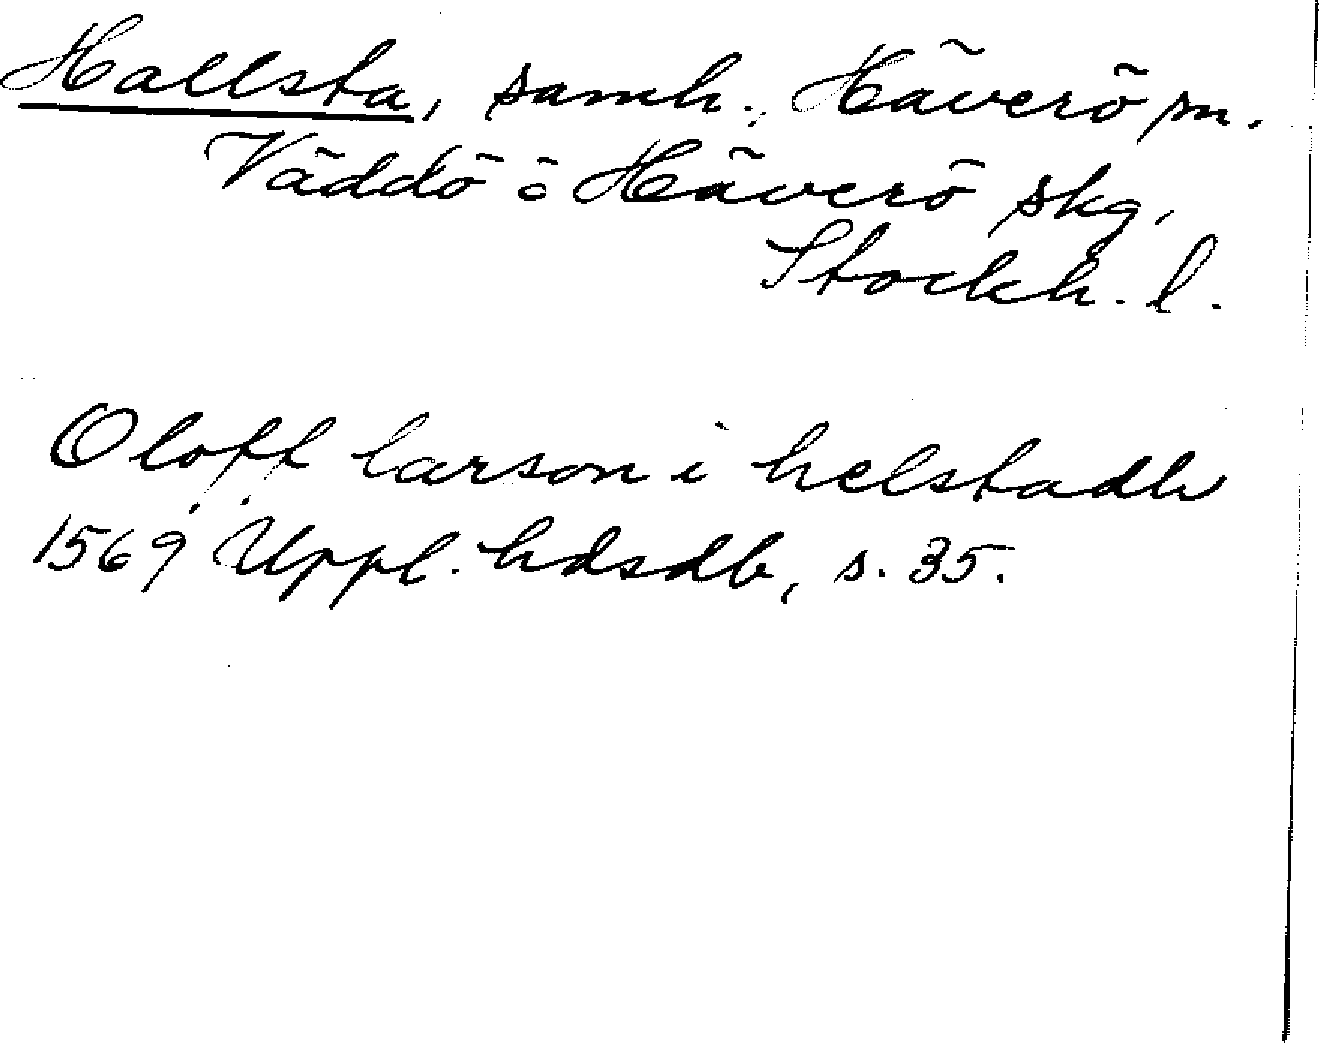 Hallsta, samh., Häverö sn.
Väddö o Häverö skg,
Stockh. l.
Oloff larson i helstadh
1569 Uppl. hdsdb, s. 35.